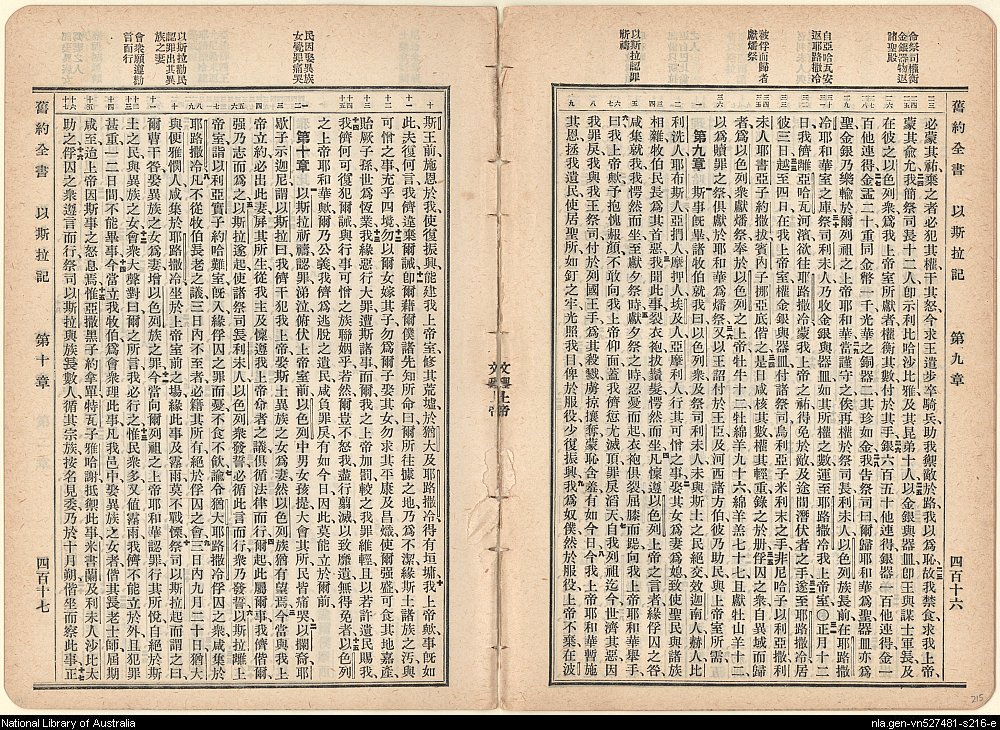 舊約全書 以斯拉記 第九章 四百十六
命祭司權衡
金銀器物返
諸聖殿
自亞哈瓦安
返耶路撒冷
被俘而歸者
獻燔祭
以斯拉認罪
祈禱
必蒙其祐棄之者必犯其權干其怒今求王遣步卒騎兵助我禦敵於路我以爲恥故我禁食求我上帝
蒙其兪允我簡祭司長十二人卽示利比哈沙比雅及其昆弟十人以金銀與器皿卽王與謀士軍長及
在彼之以色列衆爲我上帝室所獻者權衡其數付於其手銀六百五十他連得銀器一百他連得金一
百他連得金盂二十重同金幣一千光華之銅器二其珍如金我告祭司曰爾歸耶和華爲聖器皿亦爲
聖金銀乃樂輸於爾列祖之上帝耶和華當謹守之俟再權於祭司長利未人以色列族長前在耶路撒
冷耶和華室之庫祭司利未人乃收金銀與器皿如其所權之數運至耶路撒冷我上帝室〇正月十二
日我儕離亞哈瓦河濱欲往耶路撒冷蒙我上帝之祐得免於敵及途間潛伏者之手遂至耶路撒冷居
彼三日越至四日在我上帝室權金銀與器皿付諸祭司烏利亞子米利末之手非尼哈子以利亞撒利
未人耶書亞子約撒拔賓內子挪亞底偕之是日咸核其數權其輕重錄之於册俘囚之衆自異域而歸
者爲以色列衆獻燔祭奉於以色列之上帝牡牛十二牡綿羊九十六綿羊羔七十七且獻牡山羊十二
以爲贖罪之祭俱獻於耶和華爲燔祭又以王詔付於王臣及河西諸方伯彼乃助民與上帝室所需
第九章 斯事旣畢諸牧伯就我曰以色列衆及祭司利未人未與斯土之民絕交效迦南人赫人比
利洗人耶布斯人亞捫人摩押人埃及人亞摩利人行其可惜之事娶其女爲妻爲媳致使聖民與諸族
相雜牧伯民長爲其首惡我聞此事裂衣袍拔鬚髮愕然而坐凡懍遵以色列上帝之言者緣俘囚之咎
咸集就我我愕然而坐至獻夕祭時獻夕祭之時忍憂而起衣袍俱裂屈膝而跽向我上帝耶和華舉手
曰我上帝歟予抱愧赧顏不敢向我上帝仰面蓋我儕愆尤滅頂罪戾滔天自我列祖迄今世濟其惡因
我罪戾我與我王祭司付於列國王手爲其殺戮虜掠攘奪蒙恥含羞有如今日今我上帝耶和華暫施
其恩拯我遺民使居聖所如釘之牢光照我目俾於服役少復振興我爲奴僕然於服役上帝不棄在波
215
舊約全書 以斯拉記 第十章 四百十七
民因娶異族
女覺罪痛哭
以斯拉勸民
認罪出其異
族之妻
會衆願遵勸
言而行
斯王前施恩於我使復振興能建我上帝室修其荒墟於猶大及耶路撒冷得有垣墉我上帝歟事旣如
此夫復何言我儕違棄爾誡卽爾藉爾僕諸先知所命曰爾所往據之地乃爲不潔緣斯土諸族之汚與
可憎之事充乎四境勿以爾女嫁其子勿爲爾子娶其女勿求其平康及昌熾使爾强盛可食其地嘉產
貽厥子孫世爲恆業我緣惡行大罪遭斯諸事而爾我之上帝加罰較之我罪維輕且以若許遺民賜我
我儕何可復犯爾誡與行事可憎之族聯姻乎若然爾豈不怒我盡行翦滅以致靡遺無得免者以色列
之上帝耶和華歟爾乃公義我儕爲逃脫之遺民咸負罪戾有如今日因此莫能立於爾前
第十章 以斯拉祈禱認罪涕泣俯伏上帝室前以色列中男女孩提大會其所民皆痛哭以攔裔耶
歇子示迦尼謂以斯拉曰我儕干犯我上帝娶斯土異族之女爲妻然以色列族猶有望焉今當與我上
帝立約必出此妻屏其所生從我主及懍遵我上帝命者之議俱循法律而行爾起此屬爾事我儕偕爾
强乃志而爲之以斯拉遂起使諸祭司長利未人及以色列衆發誓必循此言而行衆乃發誓以斯拉離上
帝室詣以利亞實子約哈難室旣入緣俘囚之罪而憂不食不飮諭令猶大耶路撒冷俘囚之衆咸集於
耶路撒冷凡不從牧伯長老之議三日內不至者必籍其所有絕於俘囚之會三日內九月二十日猶大
與便雅憫人咸集於耶路撒冷坐於上帝室前之場緣此事及霧雨莫不戰慄祭司以斯拉起而謂之曰
爾曹干咎娶異族之女爲妻增以色列族之罪今當向爾列祖之上帝耶和華認罪行其所悅自絕於斯
土之民與異族之女會衆大聲對曰爾之所言我必行之惟民衆多又値霧雨我儕不能立於外且犯罪
甚重一二日間不能畢事今當立我牧伯爲會衆理此事凡我邑中娶異族之女者偕其長老士師屆期
咸至迨上帝因斯事之怒息焉惟亞撒黑子約拿單特瓦子雅哈謝抵禦此事米書蘭及利未人沙比太
助之俘囚之衆遵言而行祭司以斯拉與族長數人循其宗族按名見委乃於十月朔偕坐而察此事正
National Library of Australia
nla.gen-vn527481-s216-e